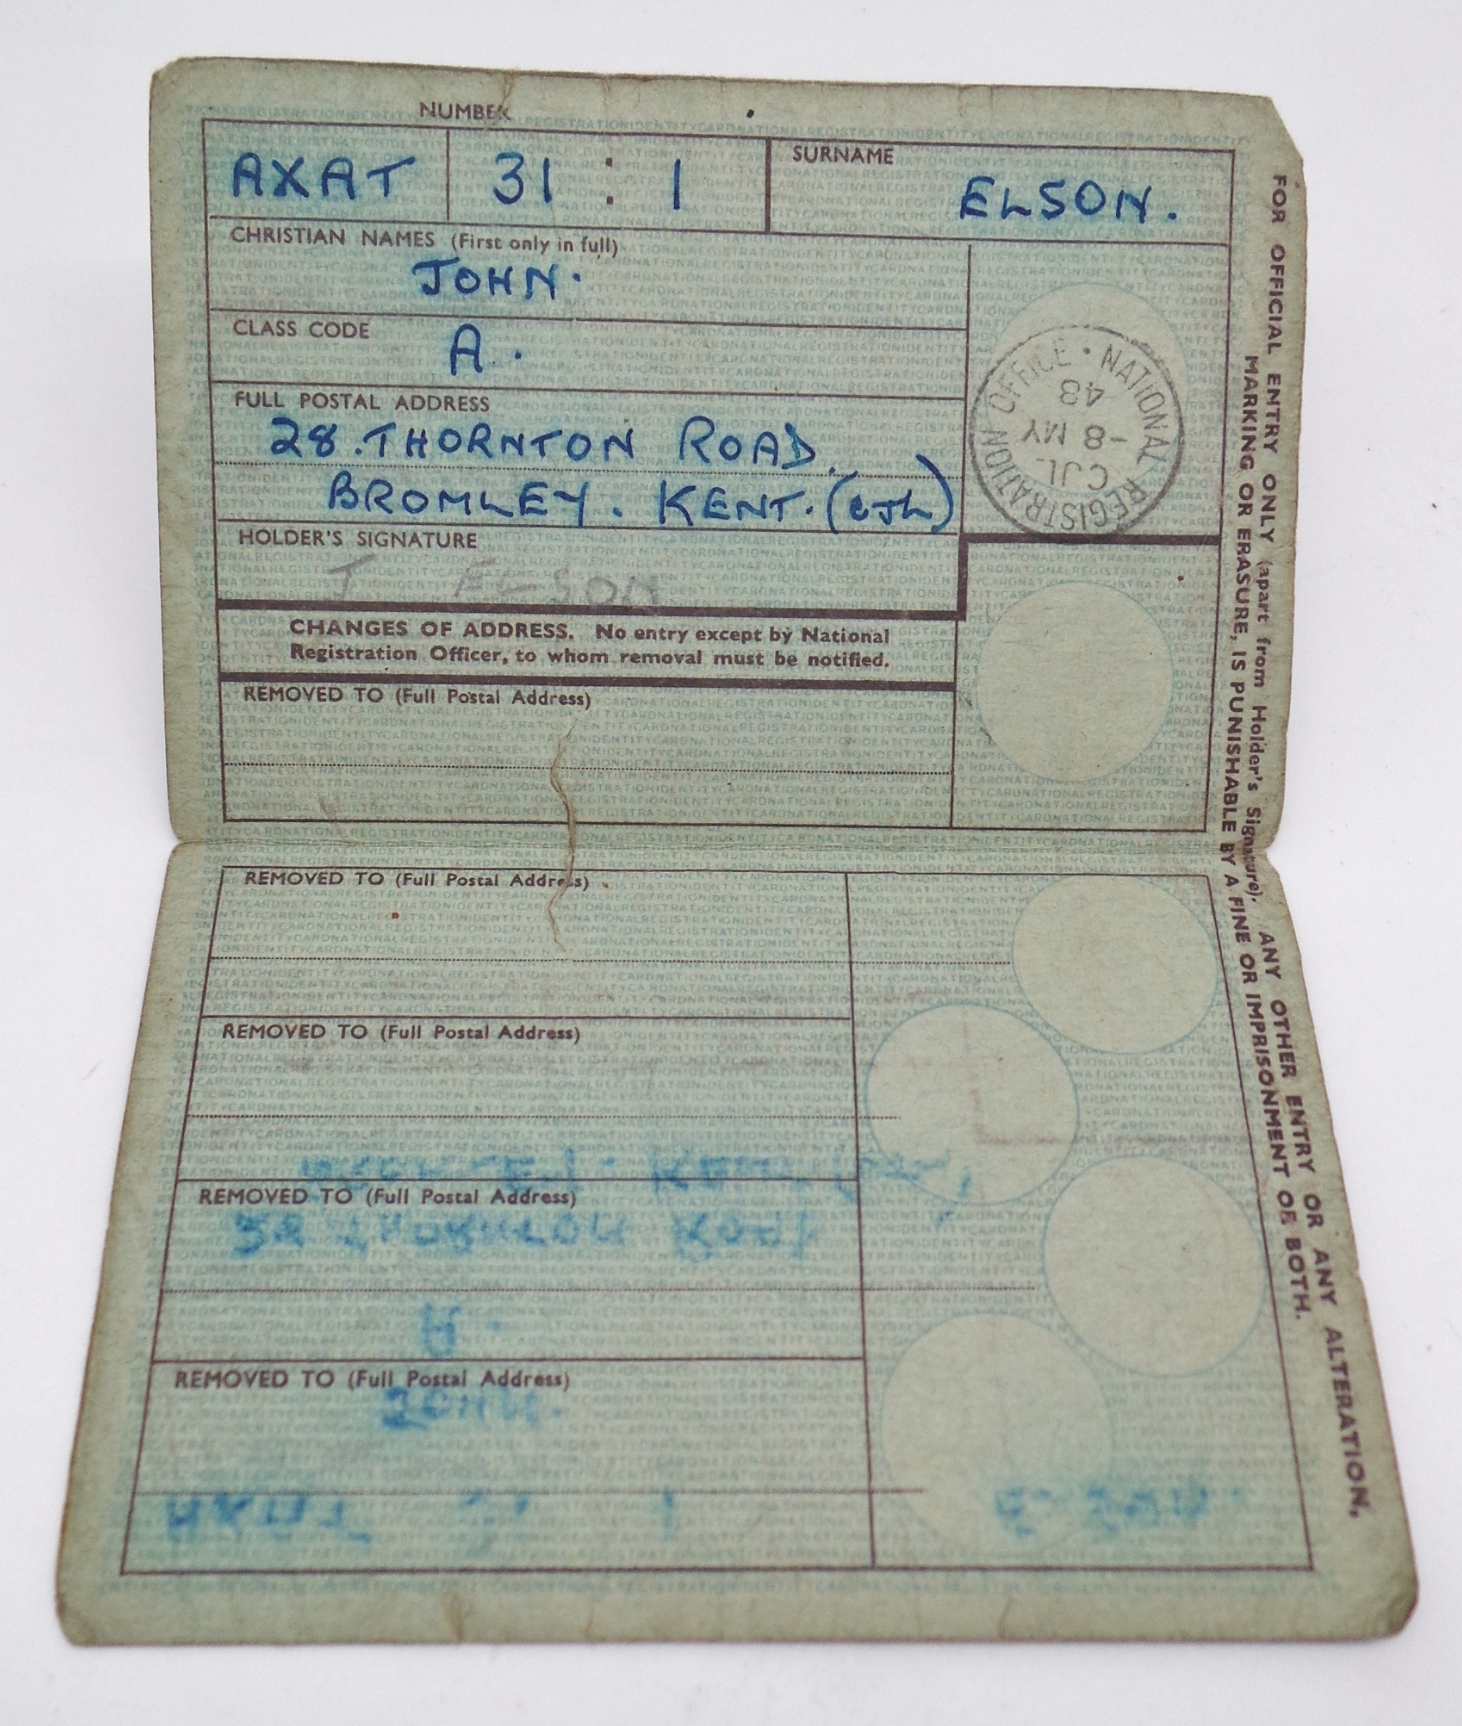 NUMBER
AXAT 31 : 1
SURNAME
ELSON.
CHRISTIAN NAMES (First only in full)
JOHN.
CLASS CODE
A.
FULL POSTAL ADDRESS
28. THORNTON ROAD.
BROMLEY. KENT. (CJL)
NATIONAL REGISTRATION OFFICE
CJL
-8 MY
43
HOLDER'S SIGNATURE
J ELSON
CHANGES OF ADDRESS. No entry except by National
Registration Officer, to whom removal must be notified.
REMOVED TO (Full Postal Address)
REMOVED TO (Full Postal Address)
REMOVED TO (Full Postal Address)
REMOVED TO (Full Postal Address)
REMOVED TO (Full Postal Address)
FOR OFFICIAL ENTRY ONLY (apart from Holder's Signature). ANY OTHER ENTRY OR ANY ALTERATION,
MARKING OR ERASURE, IS PUNISHABLE BY A FINE OR IMPRISONMENT OR BOTH.